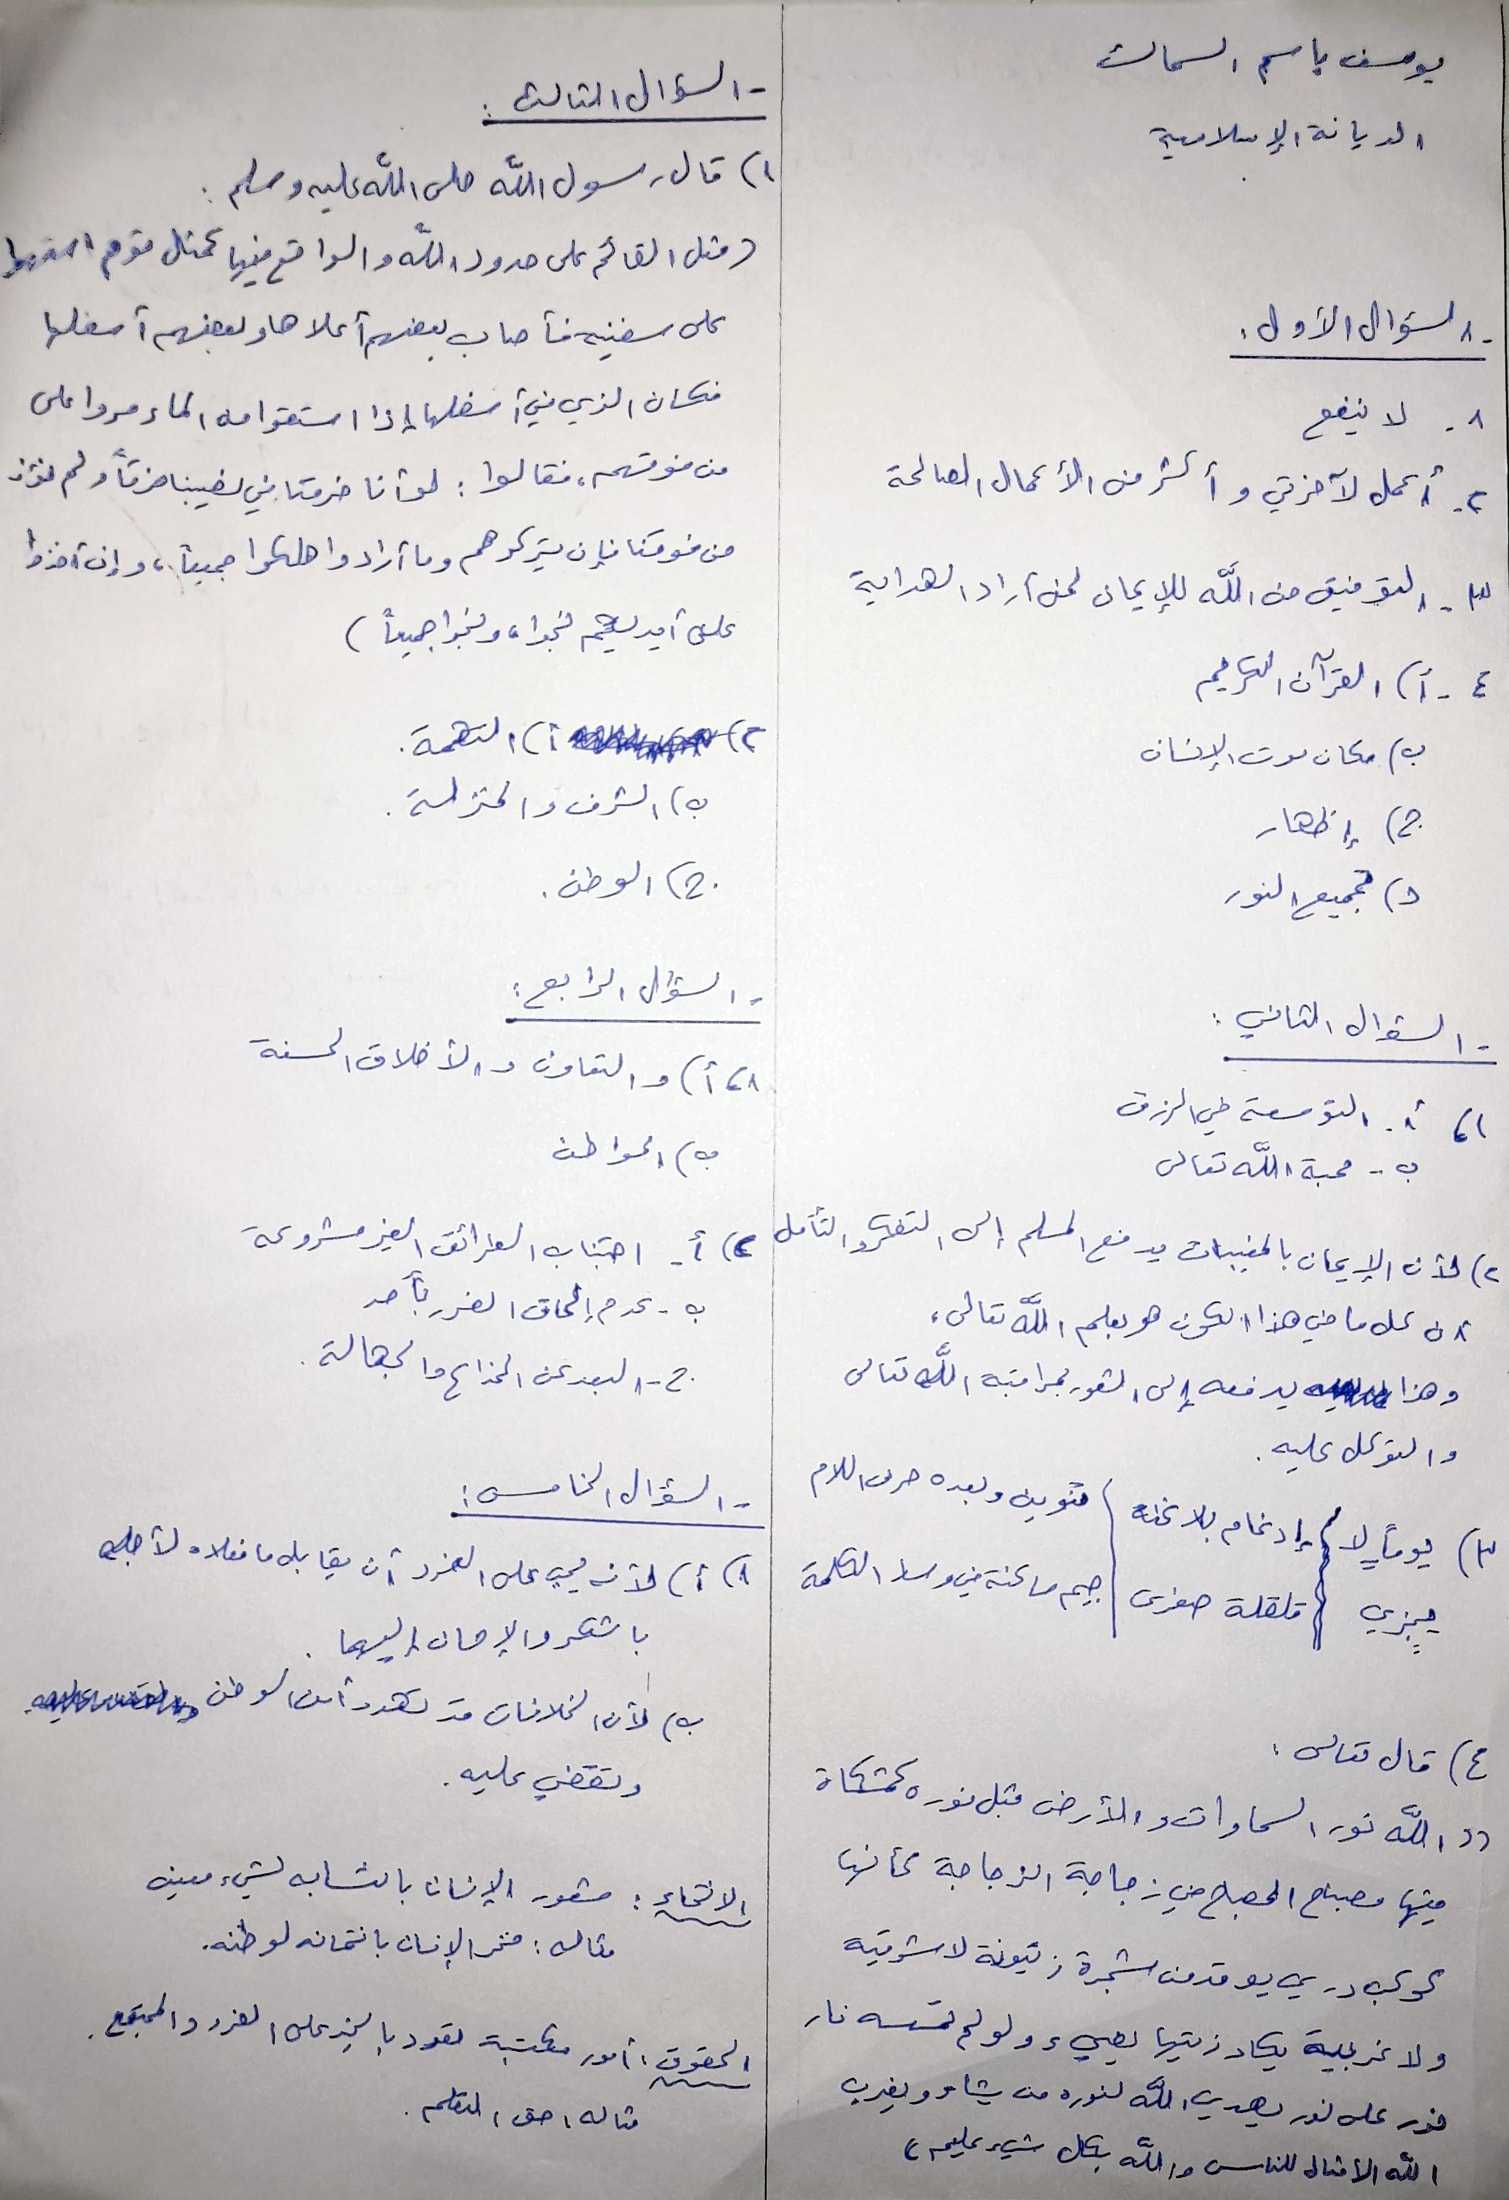 يوسف باسم السمان
الديانة الإسلامية
- السؤال الأول:
١- لا ينفع
٢- أعمل لآخرتي وأكثر من الأعمال الصالحة
٣- التوفيق من الله للإيمان لمن أراد الهداية
٤- أ) القرآن الكريم
ب) مكان موت الإنسان
ج) إظهار
د) تجميع النور
- السؤال الثاني:
١) أ- التوسعة في الرزق
ب- محبة الله تعالى
٢) لأن الإيمان بالمغيبات يدفع المسلم إلى التفكر والتأمل
أن كل ما في هذا الكون هو بعلم الله تعالى،
وهذا يدفعه إلى الشعور بمراقبة الله تعالى
والتوكل عليه.
٣) يوماً لا } إدغام بلا غنة | تنوين وبعده حرف اللام
يجزي } قلقلة صغرى | جيم ساكنة في وسط الكلمة
٤) قال تعالى:
((الله نور السماوات والأرض مثل نوره كمشكاة
فيها مصباح المصباح في زجاجة الزجاجة كأنها
كوكب دري يوقد من شجرة زيتونة لا شرقية
ولا غربية يكاد زيتها يضيء ولو لم تمسسه نار
نور على نور يهدي الله لنوره من يشاء ويضرب
الله الأمثال للناس والله بكل شيء عليم)
- السؤال الثالث:
١) قال رسول الله صلى الله عليه وسلم:
(مثل القائم على حدود الله والواقع فيها كمثل قوم استهموا
على سفينة فأصاب بعضهم أعلاها وبعضهم أسفلها
فكان الذي في أسفلها إذا استقوا من الماء مروا على
من فوقهم، فقالوا: لو أنا خرقنا في نصيبنا خرقاً ولم نؤذ
من فوقنا فإن يتركوهم وما أرادوا هلكوا جميعاً، وإن أخذوا
على أيديهم نجوا، ونجوا جميعاً)
٢) أ) التهمة.
ب) الشرف والمنزلة.
ج) الوطن.
- السؤال الرابع:
١) أ) والتعاون والأخلاق الحسنة
ب) المواطن
٢) أ- اجتناب الطرائق الغير مشروعة
ب- عدم إلحاق الضرر بأحد
ج- البعد عن الخداع والجهالة.
- السؤال الخامس:
١) أ) لأنه يجب على الفرد أن يقابل ما فعلاه لأجله
بالشكر والإحسان إليهما.
ب) لأن الخلافات قد تهدد أمن الوطن
وتقضي عليه.
الانتماء: شعور الإنسان بالتشابه لشيء معين
مثاله: فخر الإنسان بانتمائه لوطنه.
الحقوق: أمور مكتسبة تعود بالخير على الفرد والمجتمع.
مثاله: حق التعلم.